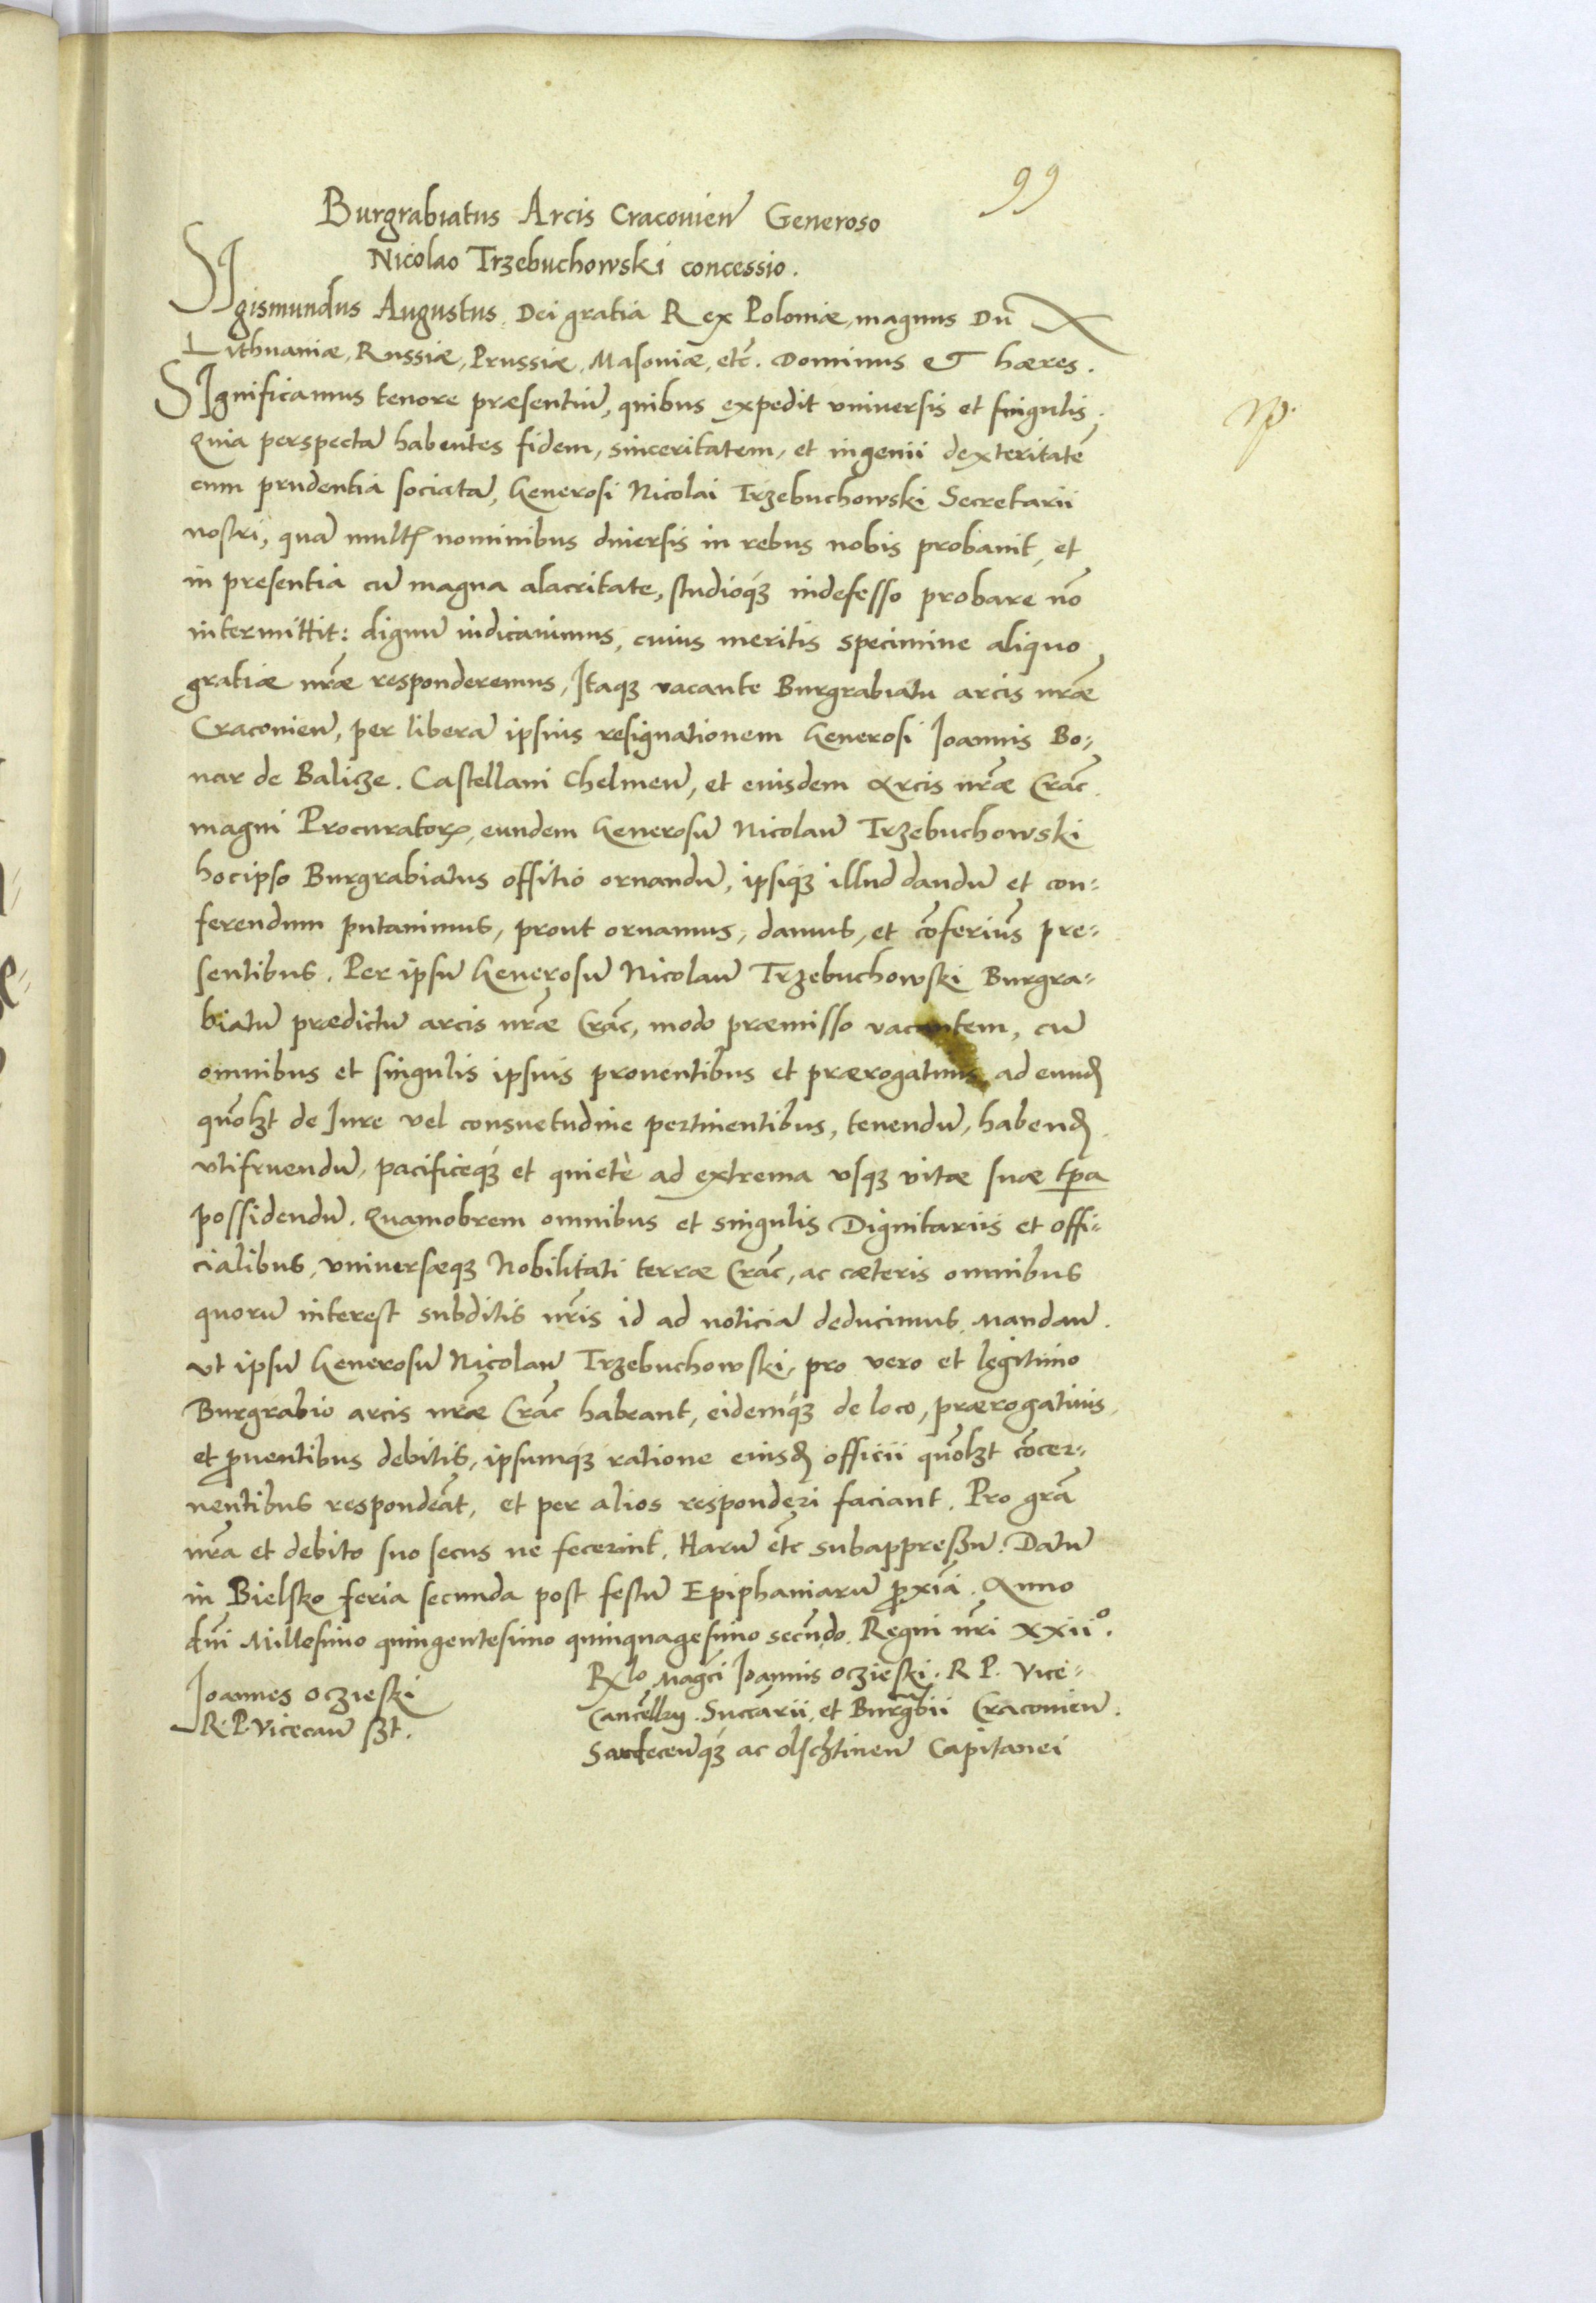 99
Burgrabiatus Arcis Cracovien̄ Generoso
Nicolao Trzebuchowski concessio.
SIgismundus Augustus. Dei gratia Rex Poloniæ, magnus Dux
Lithuaniæ, Russiæ, Prussiæ, Masoviæ, etc̄. Dominus et hæres.
SIgnificamus tenore præsentiū, quibus expedit vniversis et singulis.
Quia perspectā habentes fidem, sinceritatem, et ingenii dexteritatē
cum prudentia sociatā, Generosi Nicolai Trzebuchowski Secretarii
nostri, quā multꝭ nominibus diversis in rebus nobis probauit, et
in presentia cū magna alacritate, studioqꝫ indefesso probare nō
intermittit: dignū iudicauimus, cuius meritis specimine aliquo
gratiæ nr̄æ responderemus, Itaqꝫ vacante Burgrabiatu arcis nr̄æ
Cracouien̄, per liberā ipsius resignationem Generosi Joannis Bo-
nar de Balicze. Castellani Chelmen̄, et eiusdem Arcis nr̄æ Crac̄.
magni Procuratorꝭ, eundem Generosū Nicolaū Trzebuchowski
hocipso Burgrabiatus offitio ornandū, ipsiqꝫ illud dandū et con-
ferendum putauimus, prout ornamus, damus, et cōferim̄s pre-
sentibus. Per ipsū Generosū Nicolaū Trzebuchowski Burgra-
biatū prædictū arcis nr̄æ Crac̄, modo præmisso vacantem, cū
omnibus et singulis ipsius prouentibus et prærogatiuis, ad eundꝫ
quōlꝫt de Jure vel consuetudine pertinentibus, tenendū, habendꝫ.
vtifruendū, pacificeqꝫ et quietè ad extrema vsqꝫ vitæ suæ tp̄a
possidendū. Quamobrem omnibus et singulis Dignitariis et offi-
cialibus, vniversæqꝫ Nobilitati terræ Crac̄, ac cæteris omnibus
quorū interest subditis nr̄is id ad noticiā deducimus, mandan̄.
vt ipsū Generosū Nicolaū Trzebuchowski, pro vero et legitimo
Burgrabio arcis nr̄æ Crac̄ habeant, eidemqꝫ de loco, prærogatiuis,
et ꝓventibus debitis, ipsumqꝫ ratione eiusdꝫ officii quōlꝫt cōcer-
nentibus respondeāt, et per alios responderi faciant. Pro gr̄a
nr̄a et debito suo secus ne fecerint. Harū etc̄ subappressū. Datū
in Bielsko feria secunda post festū Epiphaniarū ꝓxiā. Anno
dn̄i Millesimo quingentesimo quinquagesimo secūdo. Regni nr̄i xxiiº.
Joannes Oczieski
R. P. Vicecan̄ sꝫt.
Rxlo Magc̄i Joannis Oczieski. R. P. Vice-
Cancellr̄ij. Succar̄ii, et Burgᵃbii Cracouien̄.
Sandecen̄qꝫ ac Olschtinen̄ Capitanei